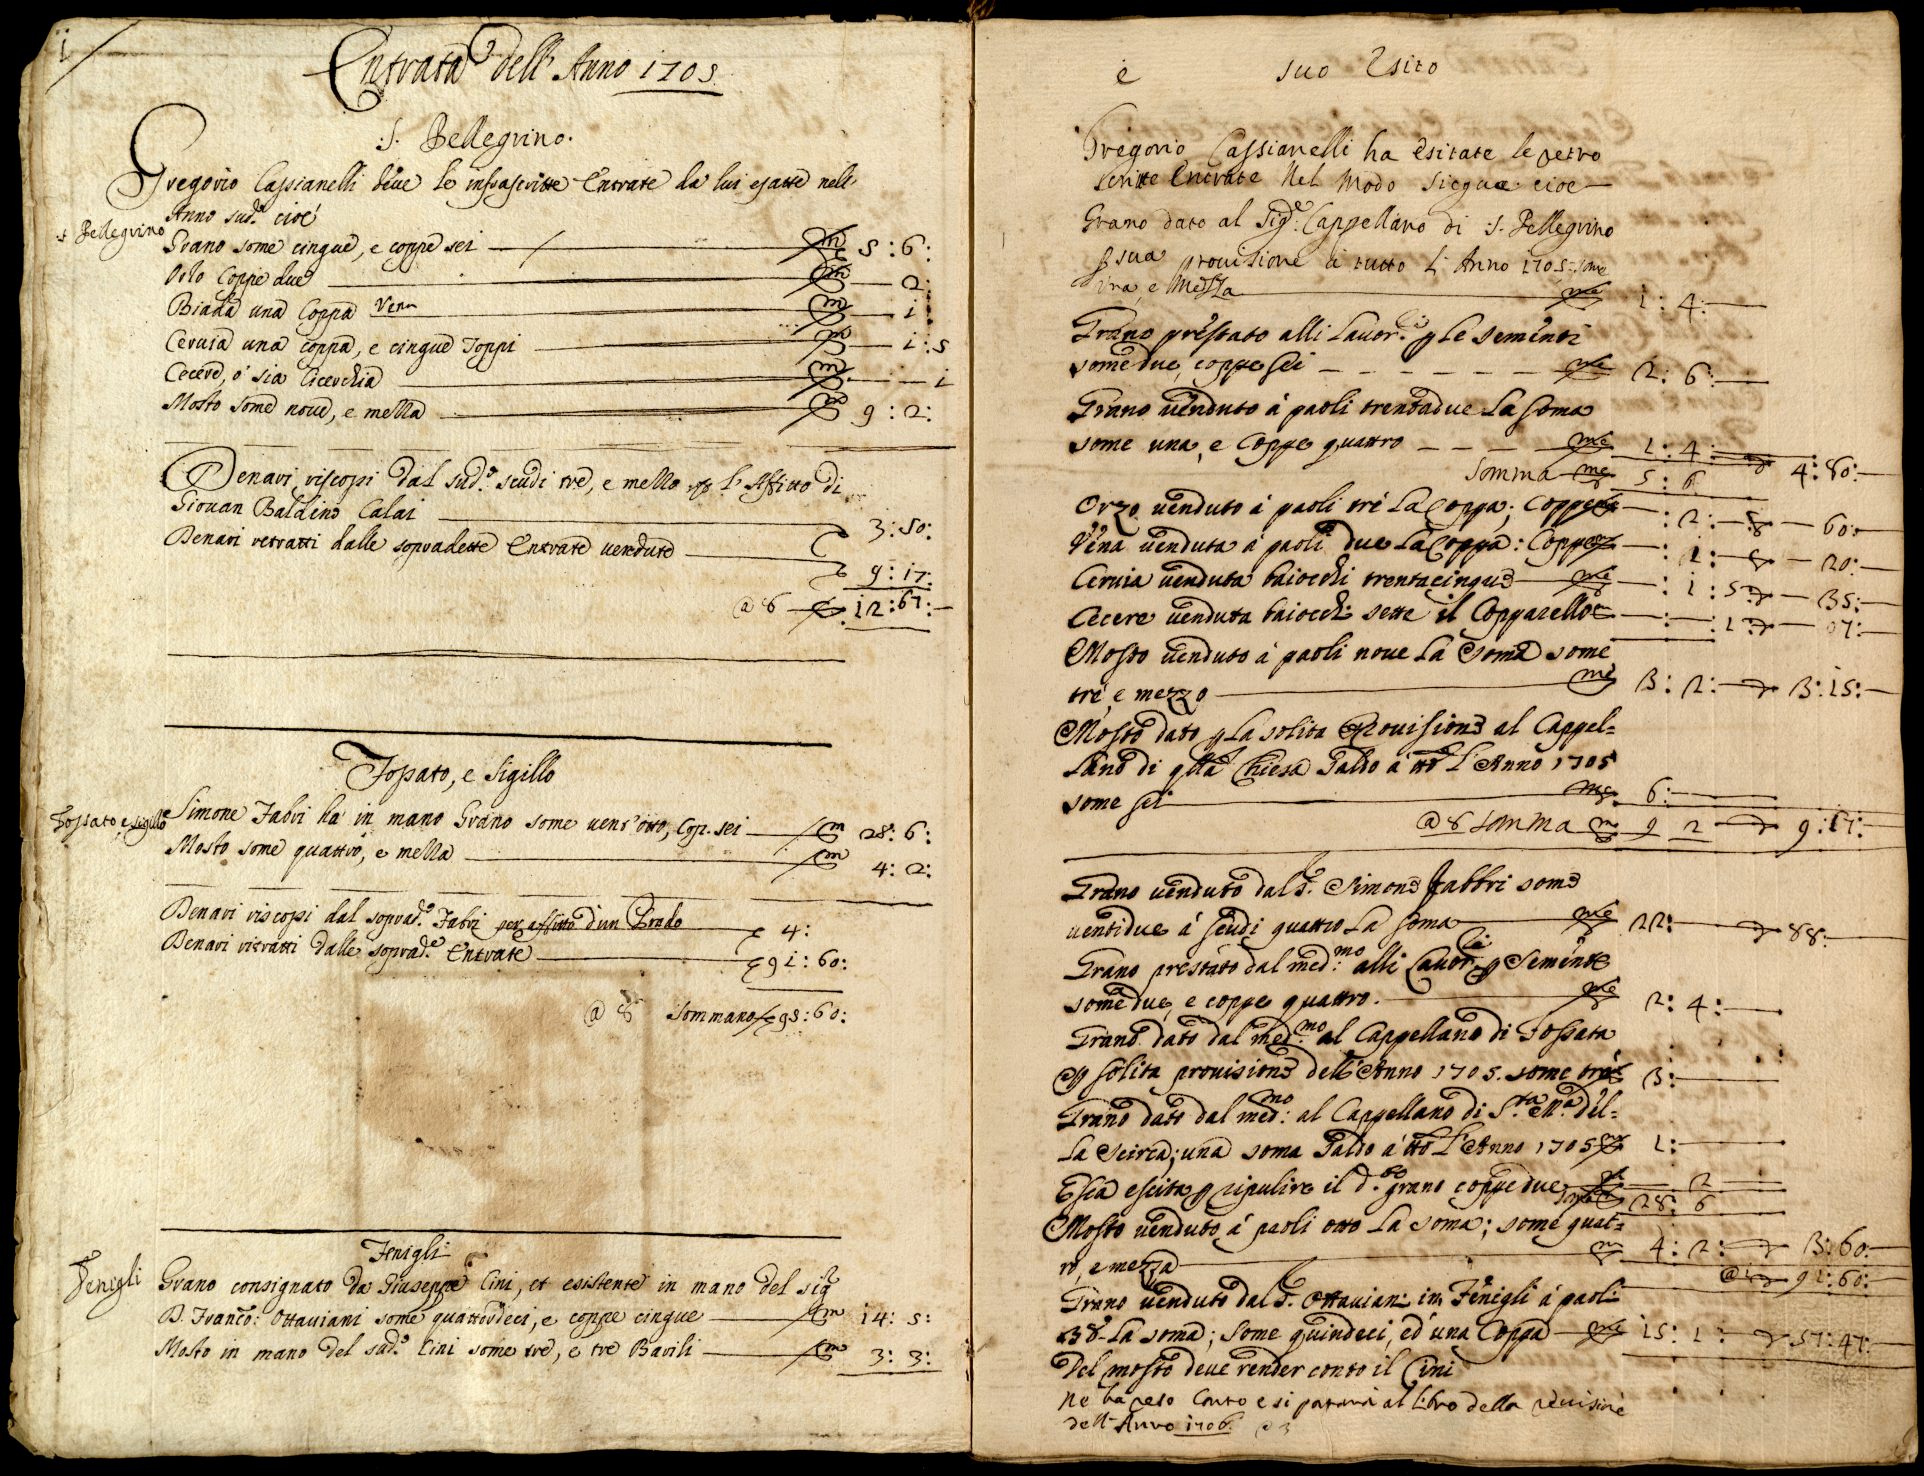 1
Entrata dell' Anno 1705
S. Pellegrino.
Gregorio Cassianelli deve le infrascritte Entrate da lui esatte nell'
Anno sud.º cioè
S. Pellegrino
Grano some cinque, e coppe sei — m 5 : 6 :
Orzo Coppe due — m — 2
Biada una Coppa Vena — m — 1 :
Cervia una coppa, e cinque Toppi — m — 1 : 5
Cecere, ò sia Cicerchia — m — — 1
Mosto some nove, e mezza — m 9 : 2 :
Denari riscossi dal sud.º scudi tre, e mezzo l'Affitto di
Giovan Baldino Calai — 3 : 50 :
Denari retratti dalle sopradette Entrate vendute —
9 : 17 :
@ 8 — 12 : 67 : —
Fossato, e Sigillo
Fossato, e Sigillo
Simone Fabri ha in mano Grano some vent'otto, Cop. sei — m 28 : 6 :
Mosto some quattro, e mezza — m 4 : 2 :
Denari riscossi dal soprad.º Fabri per affitto d'un Prado — 4 :
Denari ritratti dalle soprad.e Entrate — 91 : 60 :
@ 8 Sommano 95 : 60 :
Fenigli
Fenigli
Grano consignato da Giuseppe Cini, et esistente in mano del sig.
D. Franco: Ottaviani some quattordeci, e coppe cinque — m 14 : 5 :
Mosto in mano del sud.º Cini some tre, e tre Barili — m 3 : 3 :
e suo Esito
Gregorio Cassianelli ha esitate le retro
scritte Entrate Nel modo siegue cioè —
Grano dato al Sig.e Cappellano di S. Pellegrino
p sua provisione à tutto L'Anno 1705 some
una, e Mezza — me 1 : 4 : —
Grano prestato alli Lavor.i p Le sementi
some due, coppe sei — me 2 : 6 : —
Grano venduto à paoli trentadue La soma
some una, e Coppe quattro — me 1 : 4 : — 4 : 80 : —
Somma me 5 : 6
Orzo venduto à paoli trè La Coppa; Coppe — : 2 : — 60 : —
Vena venduta à paoli due La Coppa : Coppe — : 1 : — 20 : —
Cervia venduta baiocchi trentacinque — me — : 1 : 5 — 35 : —
Cecere venduta baiocch: sette il Copparello — : — : 1 — 07 : —
Mosto venduto à paoli nove La soma some
tre, e mezzo — me 3 : 2 : — 3 : 15 : —
Mosto dato p La solita Provisione al Cappel=
lano di q.lla Chiesa Saldo à tto L'Anno 1705
some sei — me 6 : —
@ 8 Somma m 9 2 — 9 : 17 : —
Grano venduto dal S. Simone Fabbri some
ventidue à scudi quattro La soma — me 22 : — 88 : —
Grano prestato dal med.mo alli Lavor.i p Semente
some due, e coppe quattro. — me 2 : 4 : —
Grano dato dal med.mo al Cappellano di Fossato
p solita provisione dell'Anno 1705. some tre 3 : —
Grano dato dal med.mo al Cappellano di S.ta M.a del=
La Scirca; una soma Saldo à tto L'Anno 1705 1 : —
Esca escita p ripulire il d.to grano coppe due — 2 —
28 : 6
Mosto venduto à paoli otto La soma; some quat=
ro, e mezza — m 4 : 2 : — 3 : 60 : —
@ — 91 : 60 : —
Grano venduto dal S. Ottaviani in Fenigli à paoli
38 La soma; some quindeci, ed una Coppa — me 15 : 1 : — 57 : 47 : —
Del mosto deve render conto il Cini
Ne ha reso conto e si portarà al Libro della revisione
dell'Anno 1706.